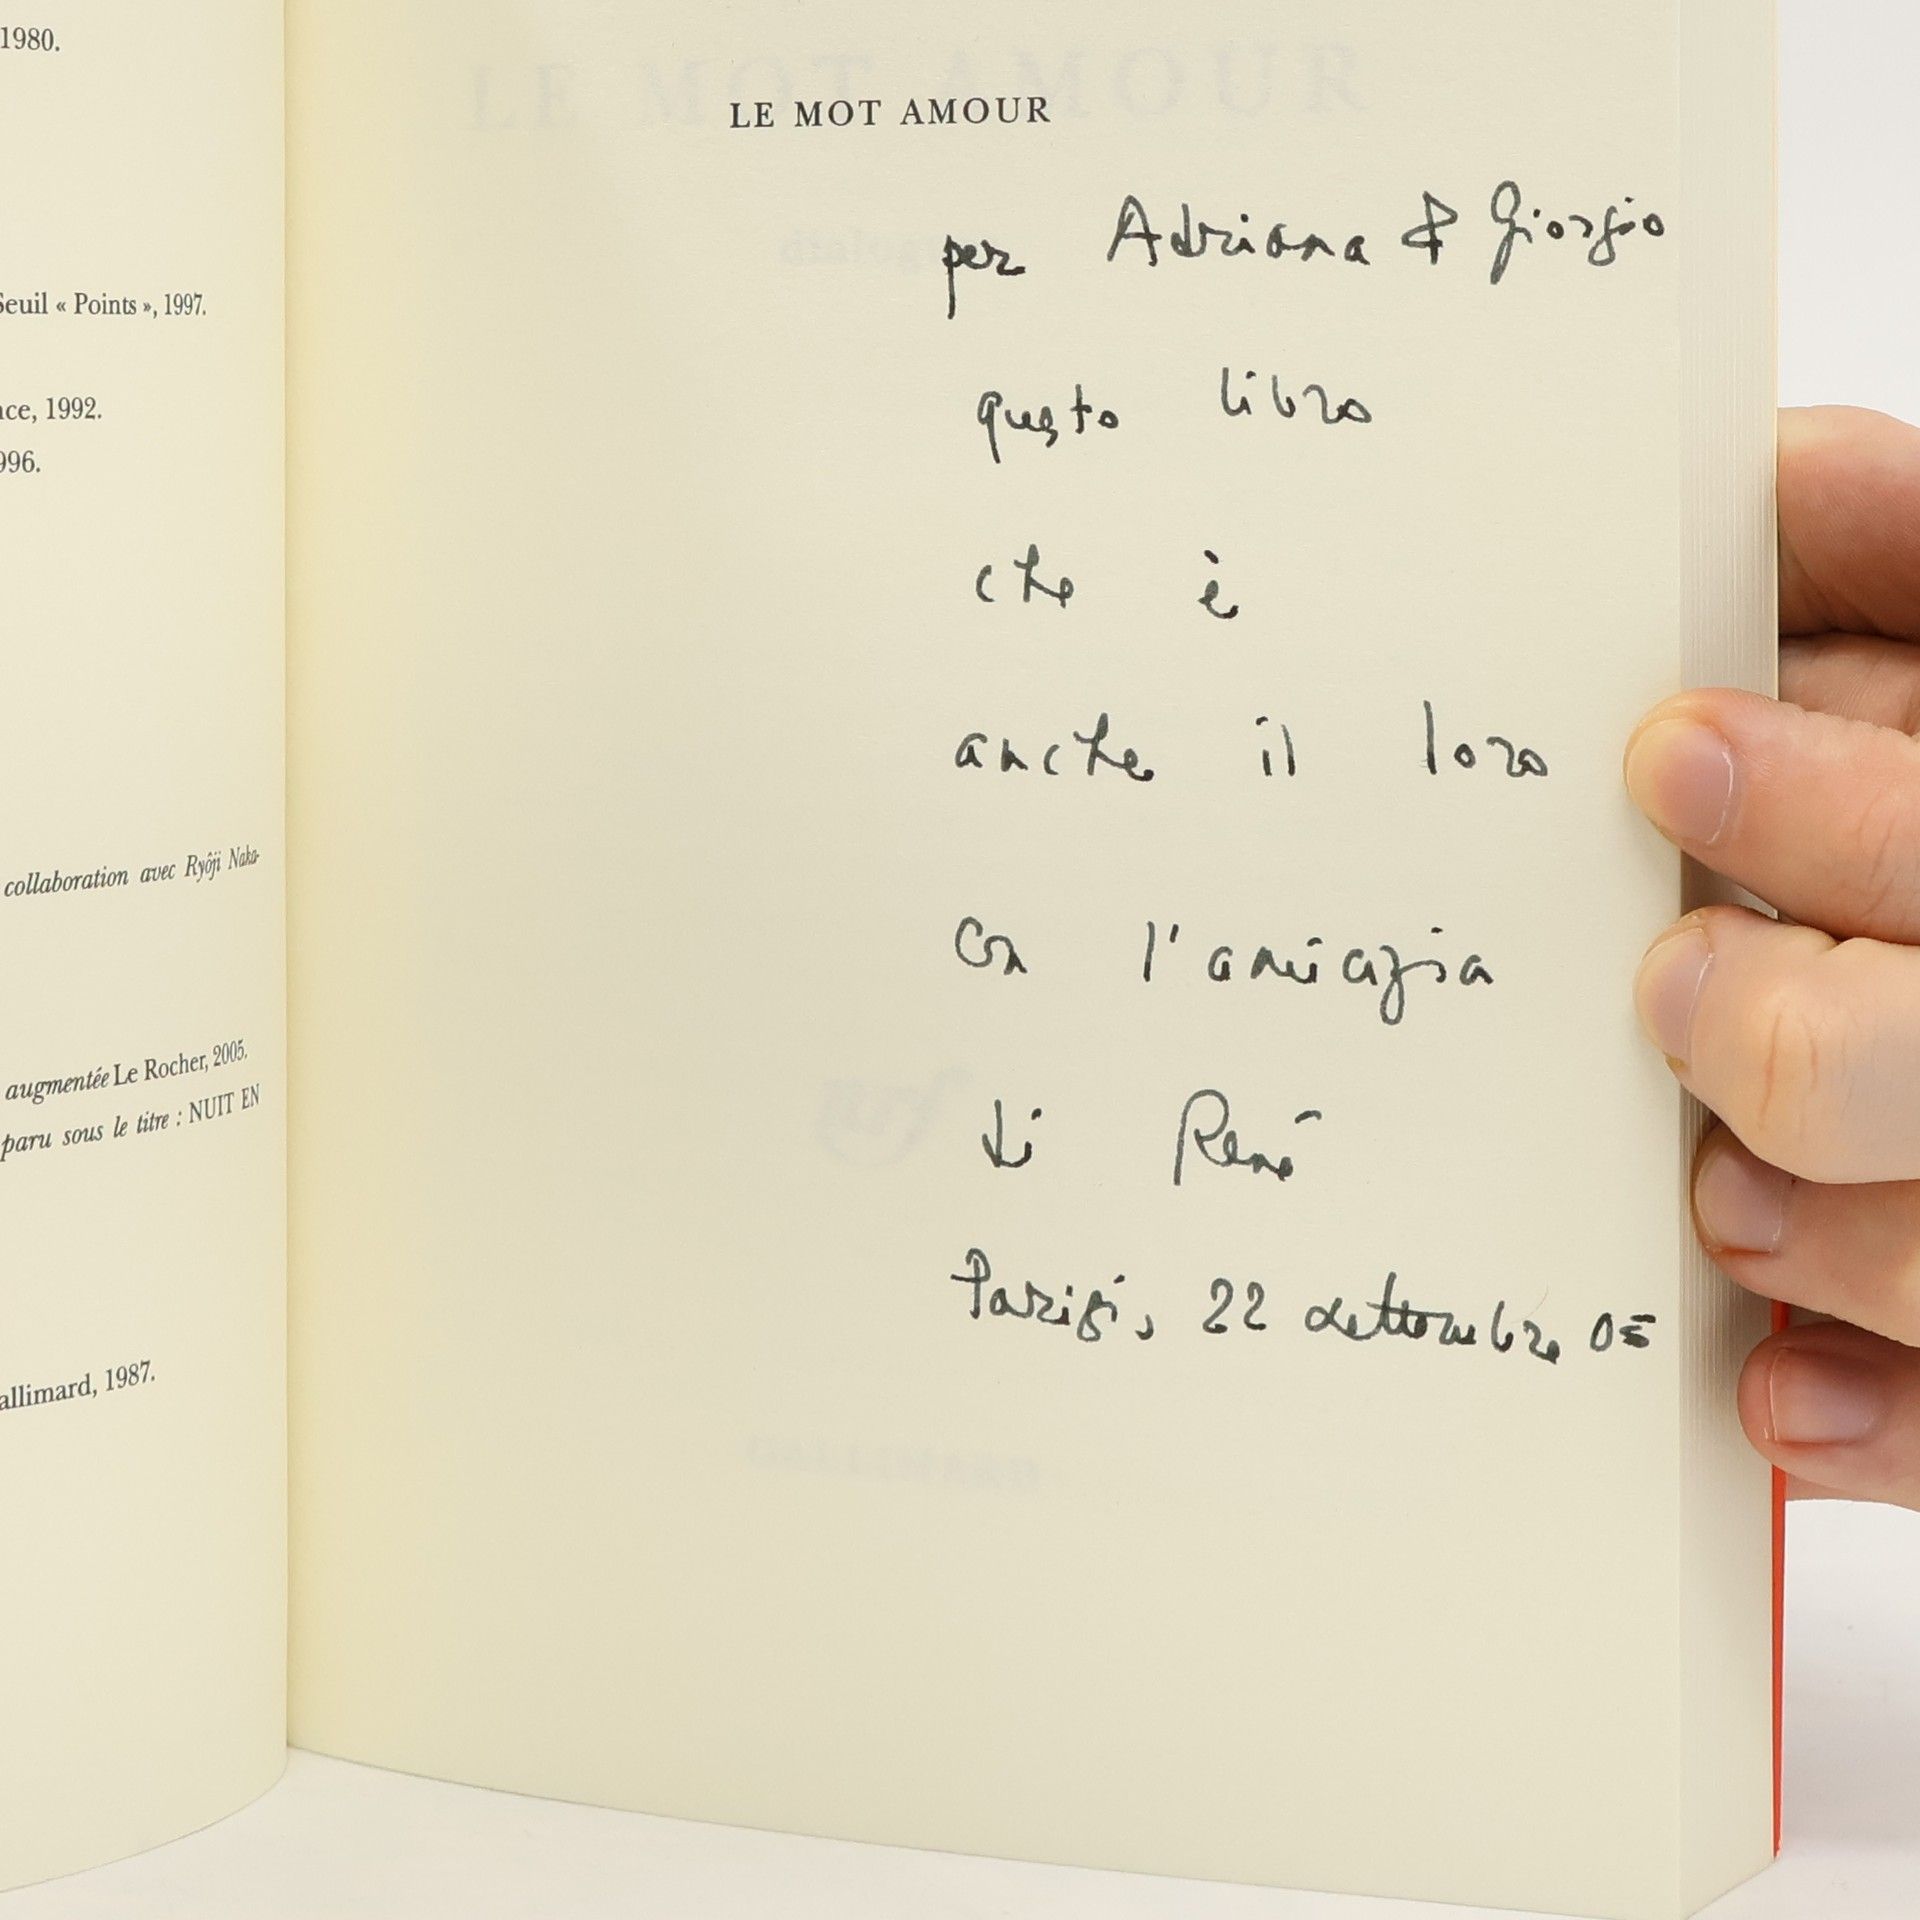 1980.
Seuil « Points », 1997.
nce, 1992.
996.
collaboration avec Ryôji Naka-
augmentée Le Rocher, 2005.
paru sous le titre : NUIT EN
allimard, 1987.
LE MOT AMOUR
LE MOT AMOUR
per Adriana & Giorgio
questo libro
che è
anche il loro
con l'amicizia
di René
Parigi, 22 settembre 05
GALLIMARD